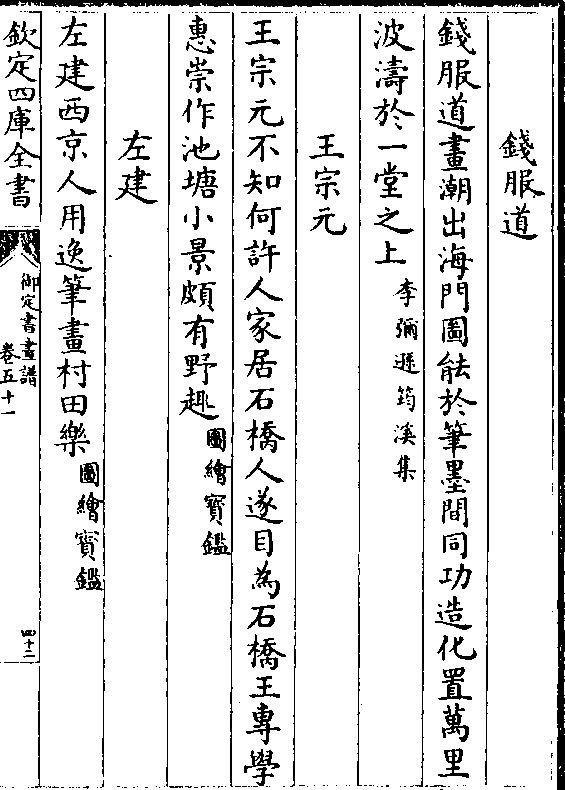 錢服道
錢服道畫潮出海門圖能於筆墨間同功造化置萬里
波濤於一堂之上李彌遜筠溪集
王宗元
王宗元不知何許人家居石橋人遂目為石橋王專學
惠崇作池塘小景頗有野趣圖繪寶鑑
左建
左建西京人用逸筆畫村田樂圖繪寶鑑
欽定四庫全書
御定書畫譜
卷五十一
四十二